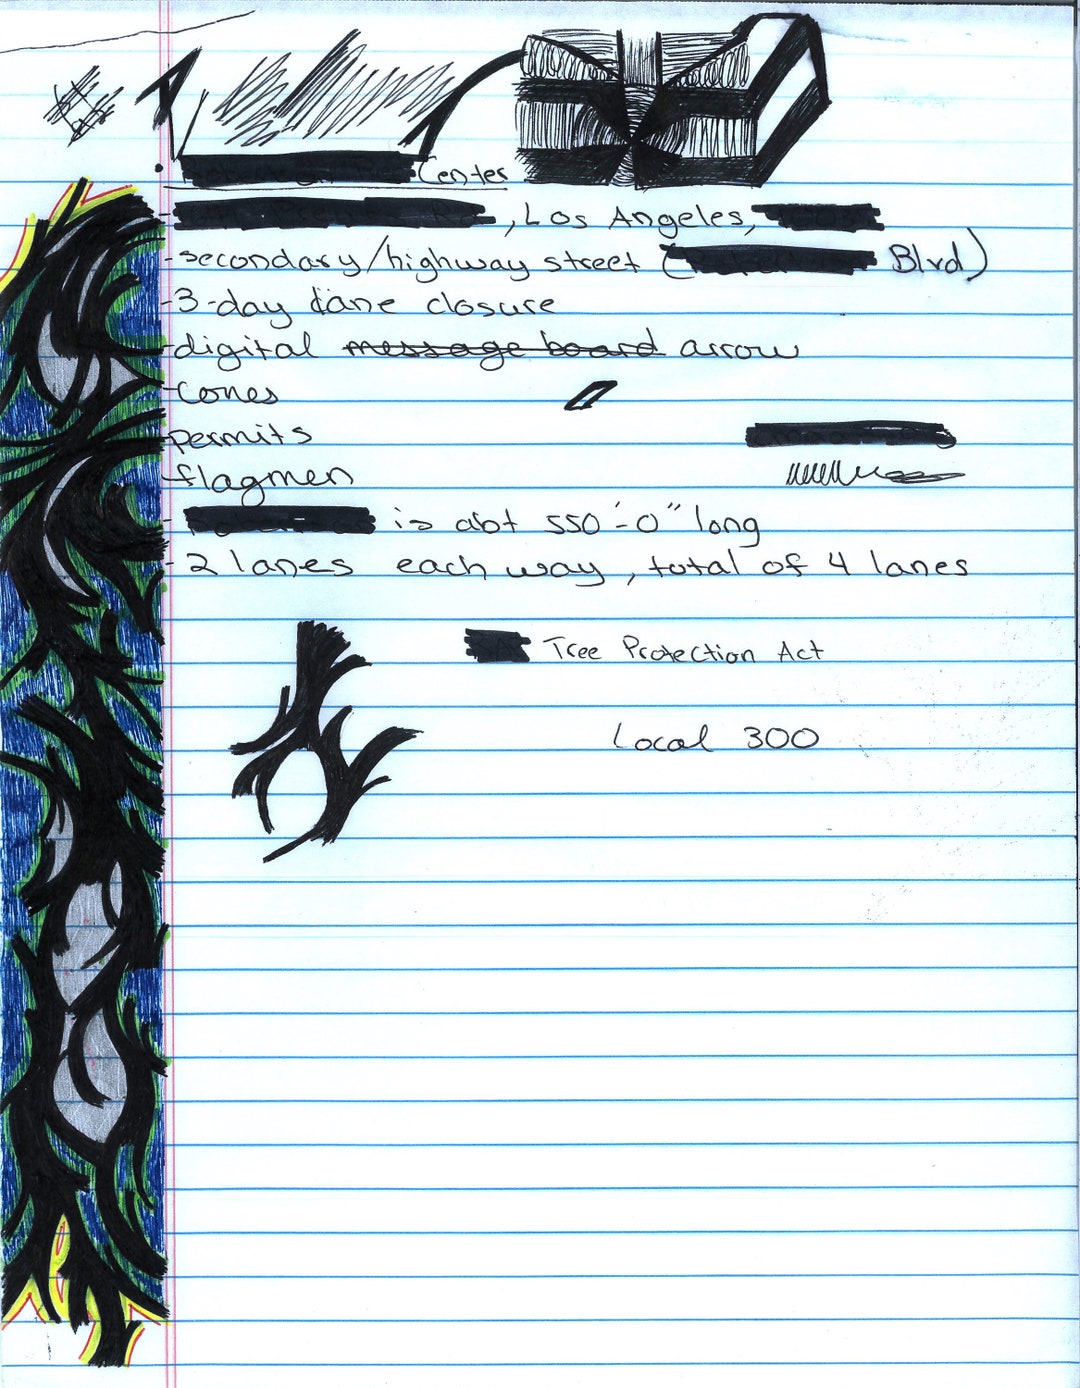 Center
, Los Angeles,
-secondary/highway street ( Blvd)
-3-day lane closure
-digital message board arrow
-cones
permits
-flagmen
- is abt 550'-0" long
-2 lanes each way, total of 4 lanes
Tree Protection Act
Local 300